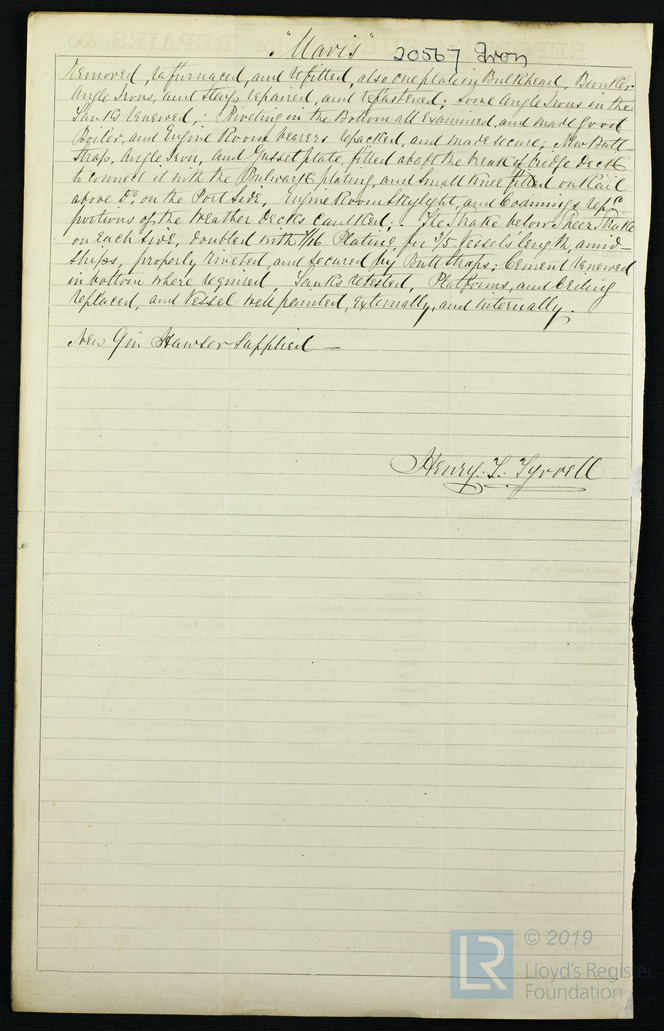 "Mavis" 20567 Iron
removed, refurnaced, and refitted, also one plate in Bulkhead, Bunker
Angle Irons, and Stays repaired, and refastened; some Angle Irons in the
Tanks renewed; Riveting in the Bottom all examined, and made good
Boiler, and Engine Room bearers repacked, and made secure; New Butt
Strap, Angle Iron, and Gusset plate, fitted abaft the break of bridge Deck
to connect it with the Bulwark plating, and small knee fitted on Rail
above do. on the Port Side, Engine Room Skylight, and Coamings repd.
portions of the weather Decks caulked; The Strake below Sheer Strake
on each side, doubled with 7/16 Plating for 3/5 Vessels length, amid-
ships, properly riveted, and secured by Butt Straps; Cement renewed
in bottom where required, Tanks retested, Platforms, and Ceiling
replaced, and Vessel well painted, externally, and internally.
New 9in Hawser Supplied —
Henry. L. Tyrrell
© 2019
LR
Lloyd's Register
Foundation